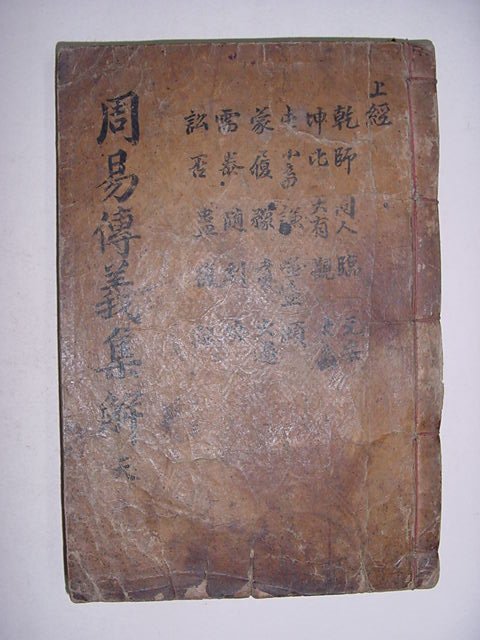 上經
乾師同人臨无妄
坤比大有觀大畜
屯小畜謙噬嗑頤
蒙履豫賁大過
需泰隨剝
訟否蠱復離
周易傳義集解 天